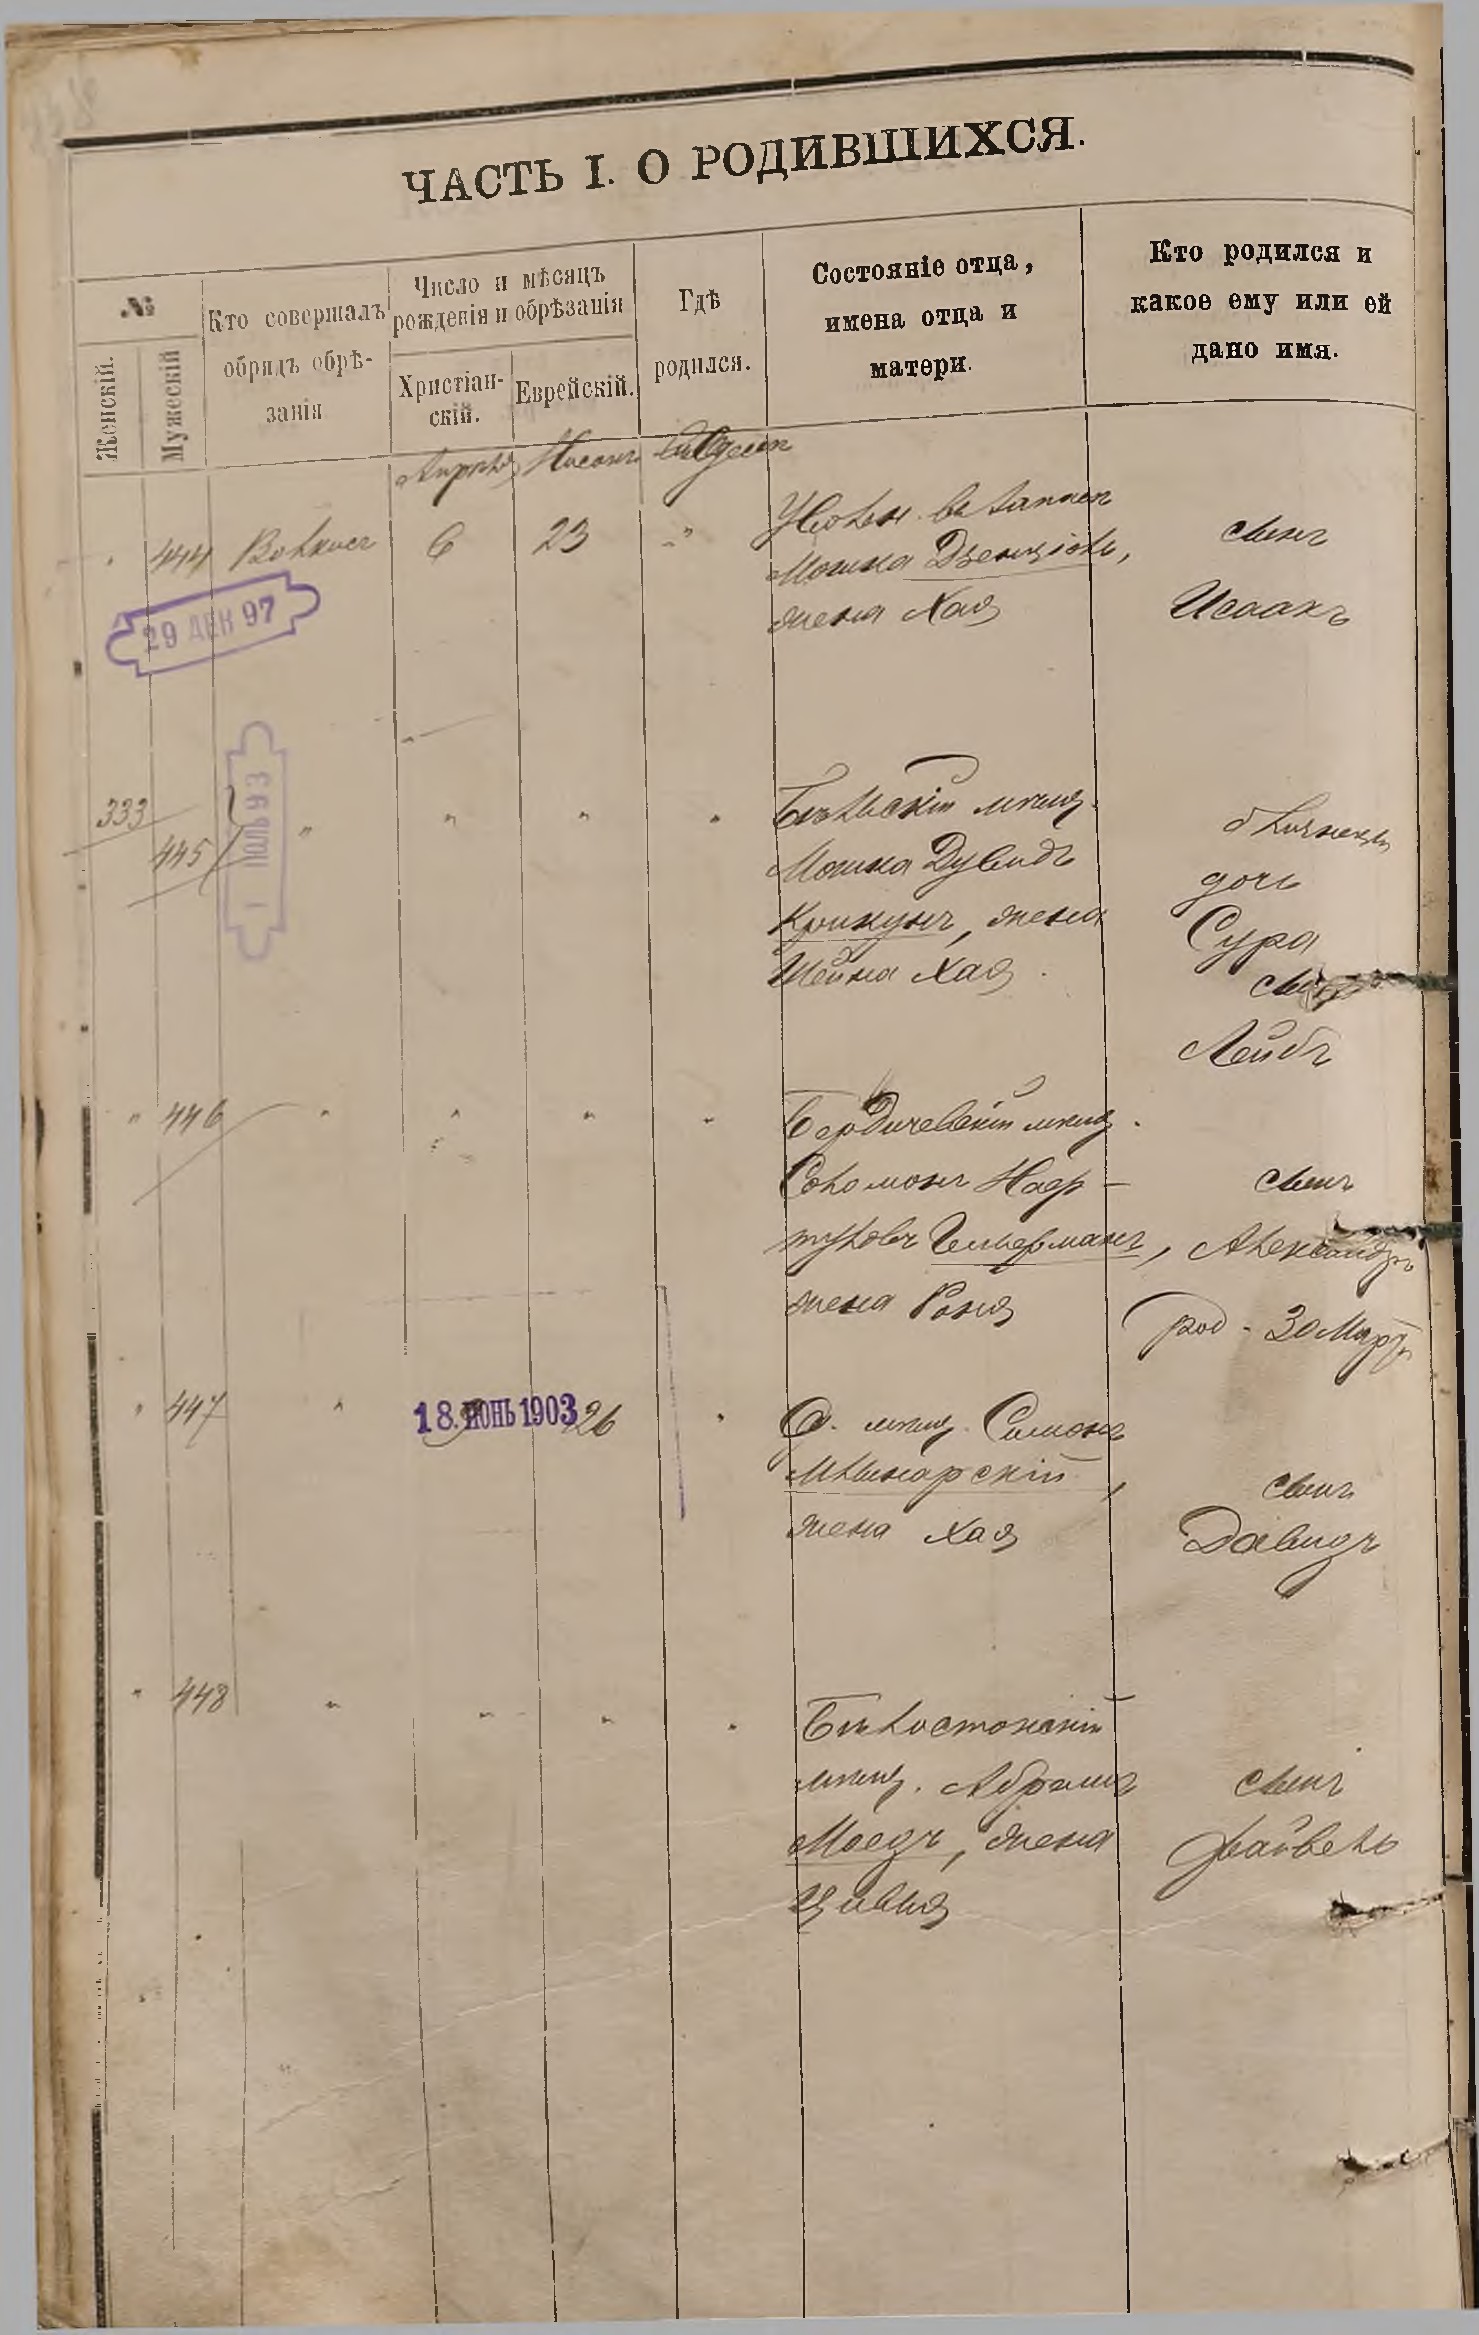 ЧАСТЬ I. О РОДИВШИХСЯ.
№
Женскій.
Мужескій
Кто совершалъ
обрядъ обрѣ-
занія
Число и мѣсяцъ
рожденія и обрѣзанія
Христіан-
скій.
Еврейскій.
Гдѣ
родился.
Состояніе отца,
имена отца и
матери.
Кто родился и
какое ему или ей
дано имя.
Апрѣль Нисонъ въ Одессѣ
444 6 23 "
Мошка
жена Хая
сынъ
Исаакъ
29 ДЕК 97
333
445
" " " "
1 ІЮЛЬ 93
Бѣльскій мѣщ.
Мошка Дувидъ
Крикунъ, жена
Шейна Хая.
близнецы
дочь
Сура
сынъ
Лейбъ
" 446 " " " "
Бердичевскій мѣщ.
Соломонъ
жена Роня
сынъ
Александръ
род. 30 Марта
" 447 " 26 "
18. ИЮНЬ 1903
О. мѣщ. Симонъ
Млинарскій,
жена Хая
сынъ
Давидъ
" 448 " " " "
Бѣлостокскій
мѣщ. Абрамъ
Моедъ, жена
Цивья
сынъ
Файвель